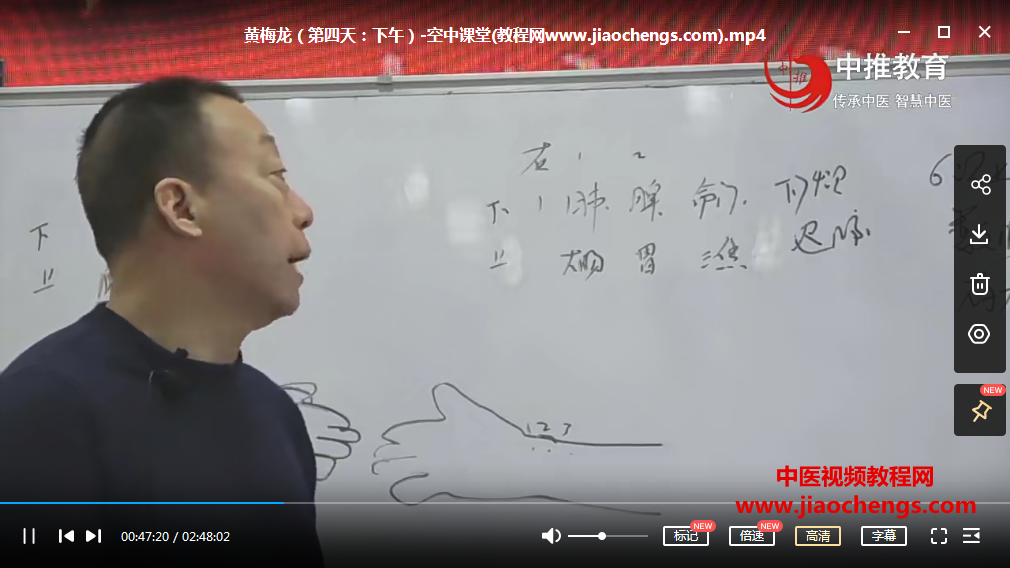 黄梅龙（第四天：下午）-空中课堂(教程网www.jiaochengs.com).mp4
中推
中推教育
传承中医 智慧中医
右 1 2
下 肺 脾 命门
大肠 胃 三焦
迟脉
下
1 2 3
NEW
中医视频教程网
www.jiaochengs.com
00:47:20 / 02:48:02
NEW
标记
NEW
倍速
高清
字幕